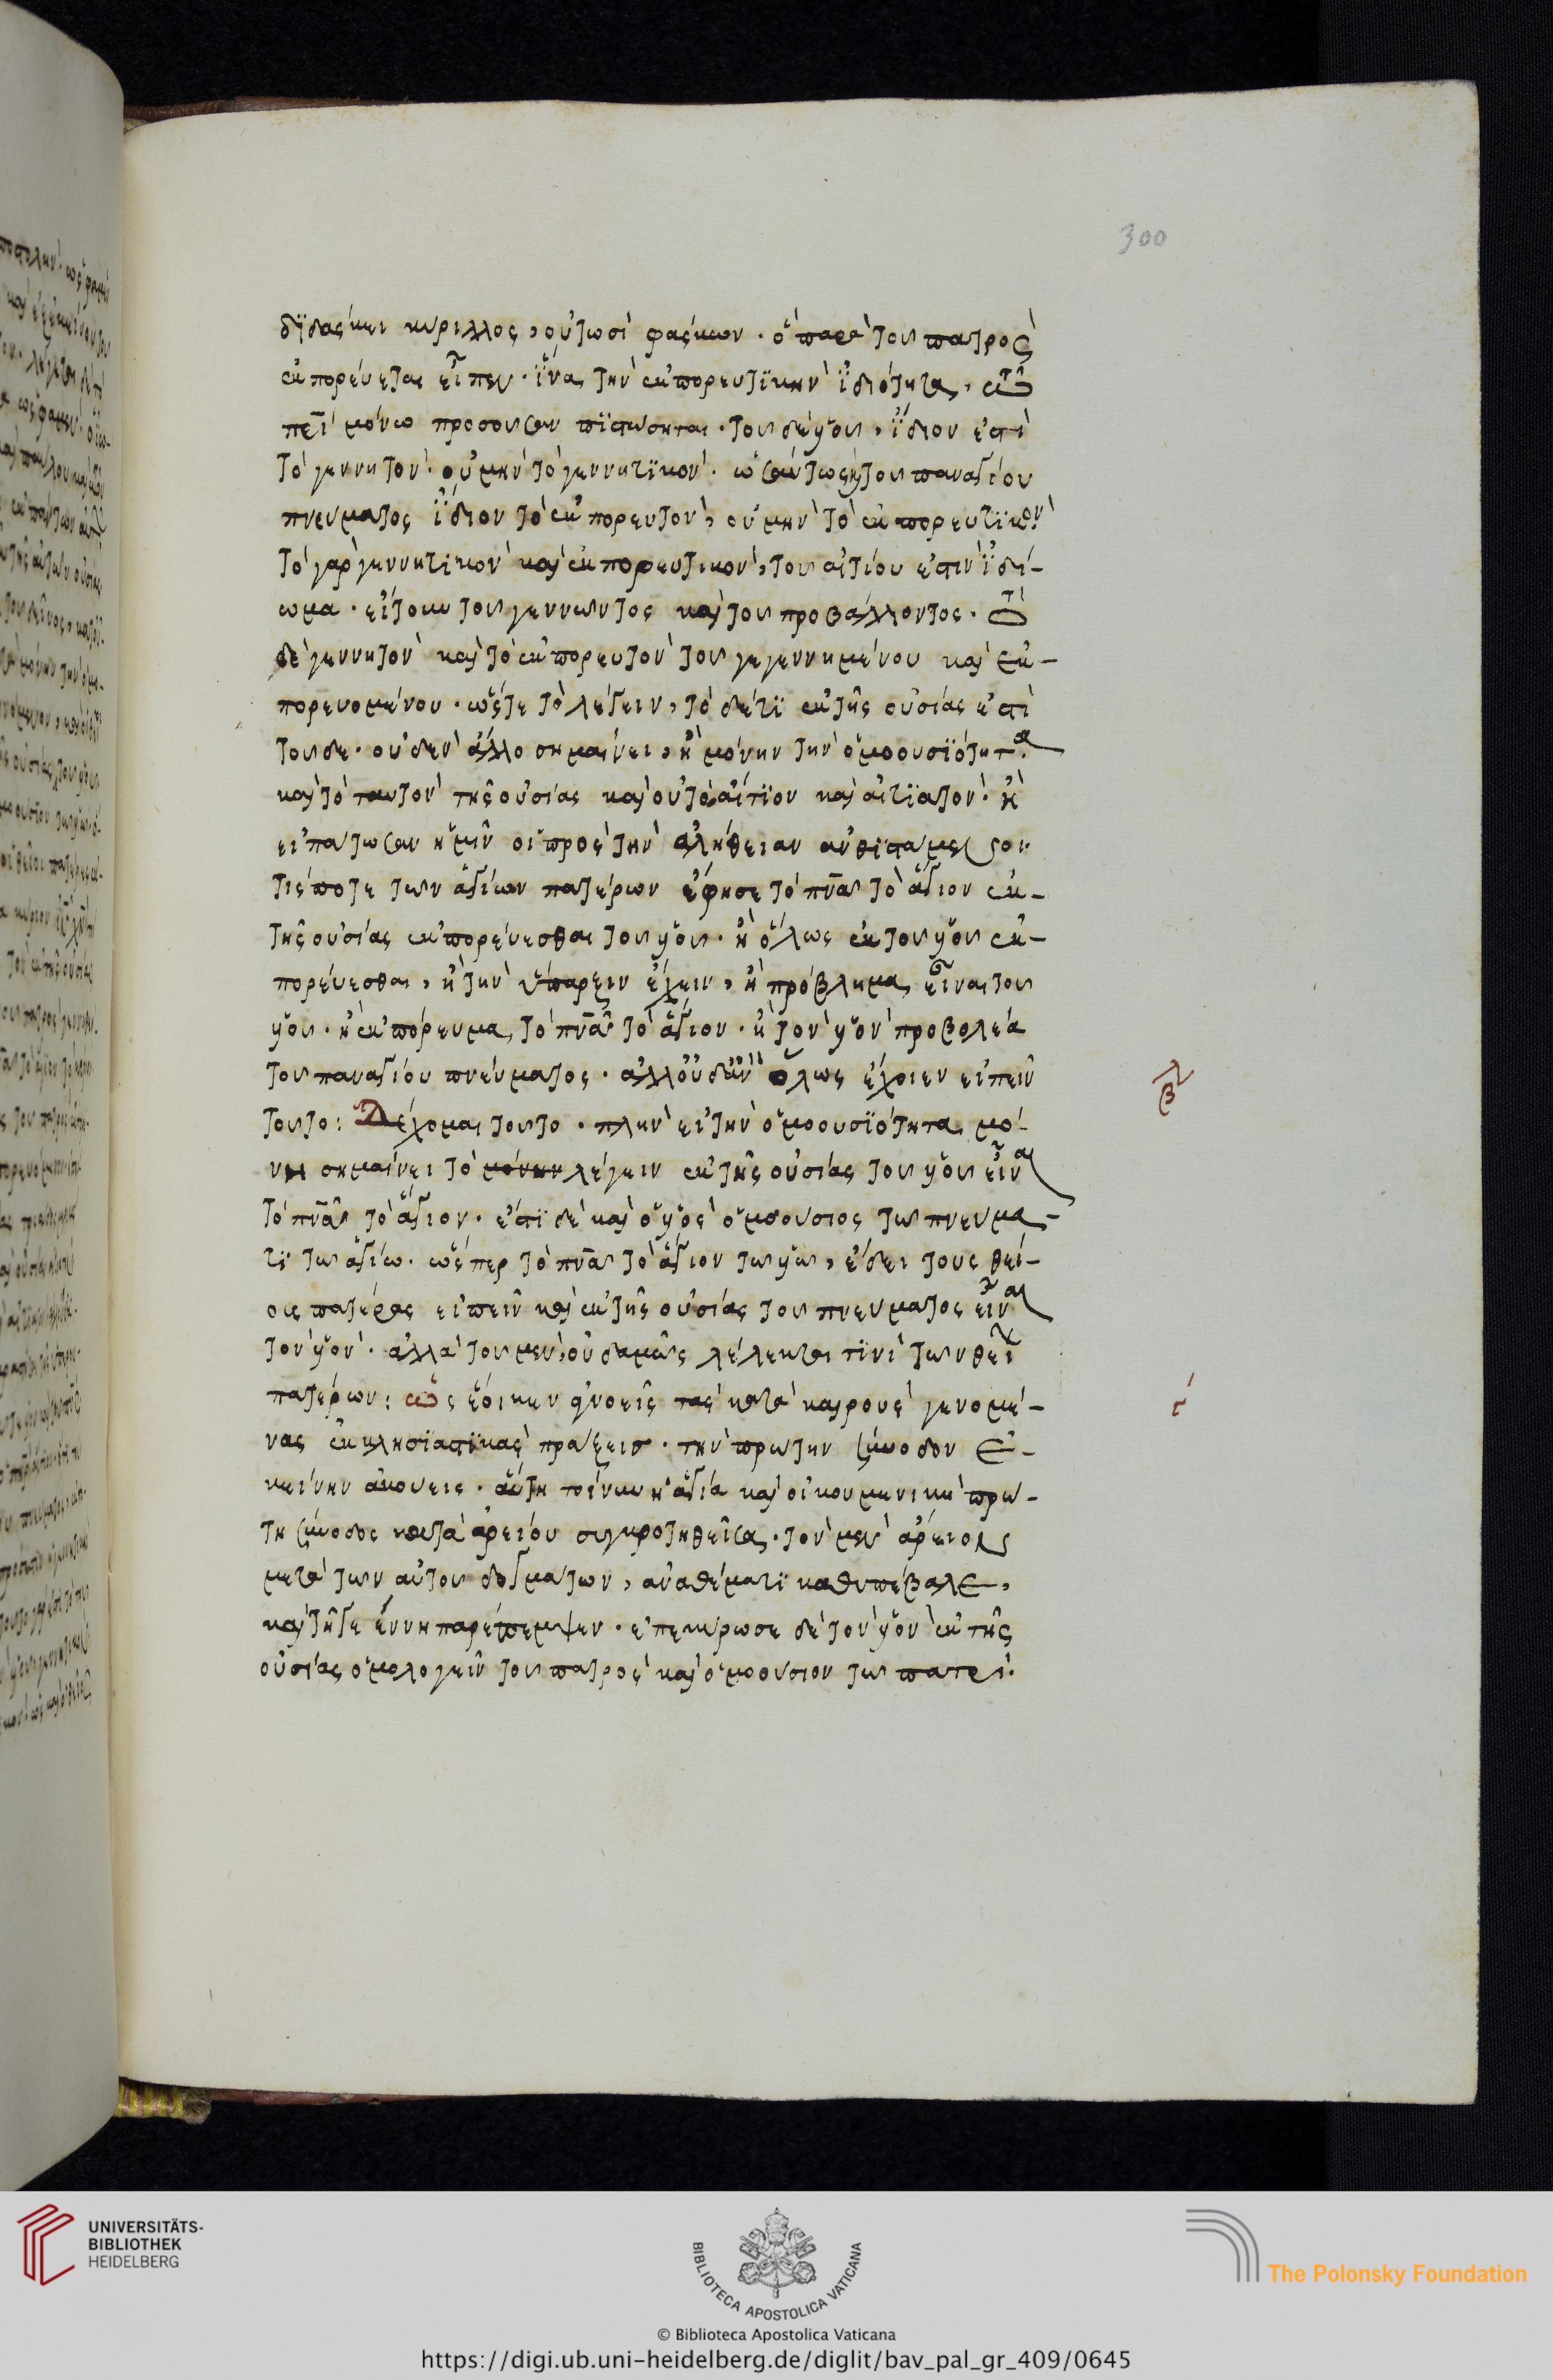 300
δϊδάσκει κύριλλος, οὑτωσὶ φάσκων. ὃ παρὰ τοῦ πατρὸς
ἐκπορεύεται εἶπεν. ἵνα τὴν ἐκπορευτϊκὴν ἰδιότητα, τῶ
πρὶ μόνω προσοῦσαν πϊστώσηται. τοῦ δὲ υἱοῦ, ἴδιον ἐστὶ
τὸ γεννητὸν. οὐ μὴν τὸ γεννητϊκὸν. ὡσαύτως καὶ τοῦ παναγίου
πνεύματος ἴδιον τὸ ἐκπορευτὸν, οὐ μὴν τὸ ἐκπορευτϊκὸν
τὸ γὰρ γεννητικὸν καὶ ἐκπορευτικὸν, τοῦ αἰτίου ἐστὶν ἰδί-
ωμα. εἴτουν τοῦ γεννῶντος καὶ τοῦ προβάλλοντος. τὸ
δὲ γεννητὸν καὶ τὸ ἐκπορευτὸν τοῦ γεγεννημένου καὶ ἐκ-
πορευομένου. ὥστε τὸ λέγειν, τὸ δέ τϊ ἐκ τῆς οὐσίας ἐστὶ
τοῦδε. οὐδὲν ἄλλο σημαίνει, ἢ μόνην τὴν ὁμοουσϊότητα
καὶ τὸ ταυτὸν τῆς οὐσίας καὶ οὐ τὸ αἴτϊον καὶ αἰτϊατὸν. ἢ
εἰπάτωσαν ἡμῖν οἱ πρὸς τὴν ἀλήθειαν ἀνθιστάμενοι
τίς ποτε τῶν ἁγίων πατέρων ἔφησε τὸ πνα τὸ ἅγιον ἐκ-
τῆς οὐσίας ἐκπορεύεσθαι τοῦ υἱοῦ. ἢ ὅλως ἐκ τοῦ υἱοῦ ἐκ-
πορεύεσθαι, ἢ τὴν ὕπαρξιν ἔχειν, ἢ πρόβλημα εἶναι τοῦ
υἱοῦ. ἢ ἐκπόρευμα, τὸ πνα τὸ ἅγιον. ἢ τὸν υἱὸν προβολέα
τοῦ παναγίου πνεύματος. ἀλλ' οὐδ' ἂν ὅλως ἔχοιεν εἰπεῖν
τοῦτο: Δέχομαι τοῦτο. πλὴν εἰ τὴν ὁμοουσϊότητα μό-
νη σημαίνει τὸ μόνην λέγειν ἐκ τῆς οὐσίας τοῦ υἱοῦ εἶναι
τὸ πνα τὸ ἅγιον. ἔστϊ δὲ καὶ ὁ υἱὸς ὁμοούσιος τῶ πνεύμα-
τϊ τῶ ἁγίω. ὥσπερ τὸ πνα τὸ ἅγιον τῶ υἱῶ, ἔδει τοὺς θεί-
ους πατέρας εἰπεῖν καὶ ἐκ τῆς οὐσίας τοῦ πνεύματος εἶναι
τὸν υἱὸν. ἀλλὰ τοῦ μὲν, οὐδαμῶς λέλεκται τϊνὶ τῶν θείων
πατέρων: ὡς ἔοικεν ἀγνοεῖς τὰς κατὰ καιροὺς γενομέ-
νας ἐκκλησϊαστϊκὰς πράξεις. τὴν πρώτην σύνοδον ἐ-
κείνην ἀκούεις. αὕτη τοίνυν ἡ ἁγία καὶ οἰκουμενικὴ πρώ-
τη σύνοδος κατὰ ἀρείου συγκροτηθεῖσα. τὸν μὲν ἄρειον
μετὰ τῶν αὐτοῦ δογμάτων, ἀναθέματϊ καθυπέβαλε,
καὶ τῆ γεέννη παρέπεμψεν. ἐπεκύρωσε δὲ τὸν υἱὸν ἐκ τῆς
οὐσίας ὁμολογεῖν τοῦ πατρὸς καὶ ὁμοούσιον τῶ πατρὶ.
UNIVERSITÄTS-
BIBLIOTHEK
HEIDELBERG
BIBLIOTECA APOSTOLICA VATICANA
The Polonsky Foundation
© Biblioteca Apostolica Vaticana
https://digi.ub.uni-heidelberg.de/diglit/bav_pal_gr_409/0645